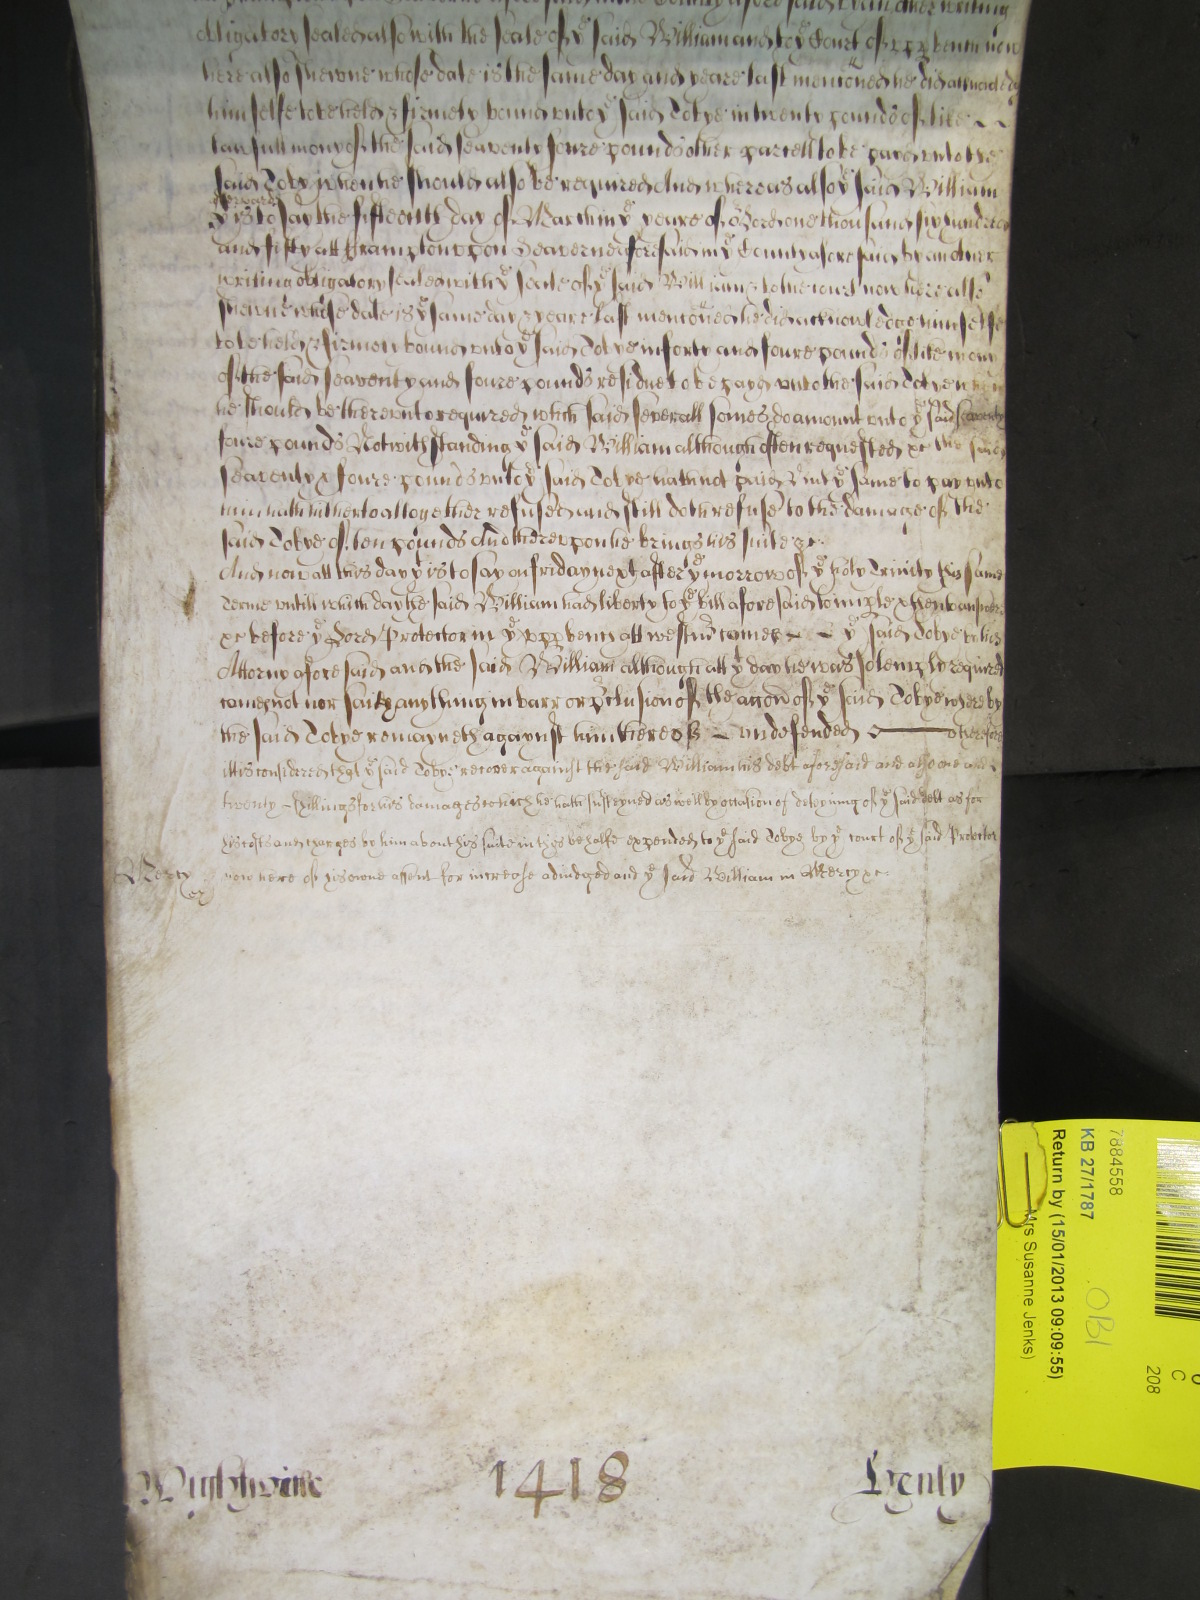 obligatory sealed also with the seale of ye said William and to ye Court of ye upp bench now
here also shewne whose date is the same day and yeare last mentioned he did acknowledge
himselfe to be held & firmely bound unto ye said Tobye in twenty pounds of like
lawfull mony of the said seaventy foure pounds other parcell to be payd unto the
said Toby when he should also be required And whereas also ye said William
afterwards
yt is to say the fifteenth day of March in ye yeare of or Lord one thousand six hundred
and fifty att Frampton upon Seaverne aforesaid in ye County aforesaid by another
writing obligatory sealed with ye seale of ye said William & to the court now here also
shewne whose date is ye same day & yeare last mentioned he did acknowledge himselfe
to be held & firmely bound unto ye said Tobye in forty and foure pounds of like mony
of the said seaventy and foure pounds residue to be payd unto the said Tobye when
he should be thereunto required which said severall somes do amount unto ye said seaventy
foure pounds Notwithstanding ye said William although often requested &c the said
seaventy & foure pounds unto ye said Tobye hath not paid but ye same to pay unto
him hath hitherto altogether refused and still doth refuse to the damage of the
said Tobye of ten pounds And thereupon he brings his suite &c.
And now att this day yt is to say on friday next after ye morrow of ye holy Trinity this same
Terme untill which day the said William had liberty to ye bill aforesaid to imple & then to answere
&c before ye Lord Protector in ye upp bench att Westmr comes ye said Tobye by his
Attorny aforesaid and the said William although att ye day he was solemply required
comes not nor saith anything in barr or pclusion of the accon of ye said Tobye whereby
the said Tobye remayneth agaynst him thereof undefended Therefore
itt is considered that ye said Tobye recover against the said William his debt aforesaid and also one and
twenty shillings for his damages which he hath susteyned as well by occation of deteyning of ye said debt as for
his costs and charges by him about his suite in this behalfe expended to ye said Tobye by ye court of ye said Protector
now here of his owne assent for increase adiudged and ye said William in Mercy &c.
Mercy
&c
Wightwicke 1418 Henly
7884558
KB 27/1787
Return by (15/01/2013 09:09:55)
Mrs Susanne Jenks)
OBI
C
208